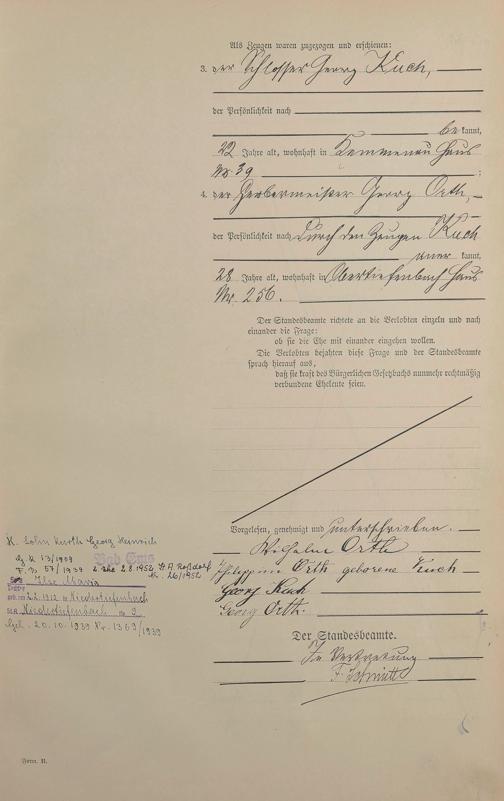 Als Zeugen waren zugezogen und erschienen:
3. der Schlosser Georg Kuch,
der Persönlichkeit nach
be kannt,
22 Jahre alt, wohnhaft in Kemmenau Haus
Nr. 39 ;
4. der Gerbermeister Georg Orth,
der Persönlichkeit nach durch den Zeugen Kuch
aner kannt,
28 Jahre alt, wohnhaft in Obertiefenbach Haus
Nr. 256.
Der Standesbeamte richtete an die Verlobten einzeln und nach
einander die Frage:
ob sie die Ehe mit einander eingehen wollen.
Die Verlobten bejahten diese Frage und der Standesbeamte
sprach hierauf aus,
daß sie kraft des Bürgerlichen Gesetzbuchs nunmehr rechtmäßig
verbundene Eheleute seien.
Vorgelesen, genehmigt und unterschrieben.
Wilhelm Orth
Philippine Orth geborene Kuch
Georg Kuch
Georg Orth.
Der Standesbeamte.
In Vertretung
F. Schmitt
K. Sohn Georg Heinrich
13/1909
Bad Ems
F. B. 57/1939 2. Ehe 2.8.1952 St. A. Roßdorf
Nr. 26/1952
Ilse Maria
2.2.1912 Niedertiefenbach
Niedertiefenbach 2
Gesl. 20.10.1939 Nr. 1363/1939
Form. II.